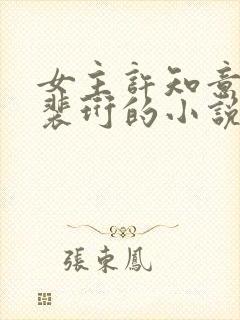 女主許知意
裴珩的小說
張東鳳